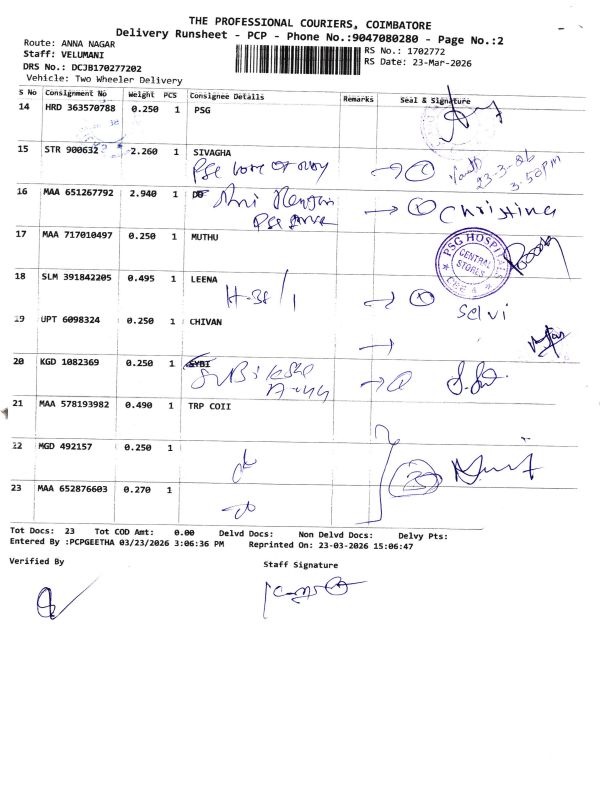 THE PROFESSIONAL COURIERS, COIMBATORE
Delivery Runsheet - PCP - Phone No.:9047080280 - Page No.:2
Route: ANNA NAGAR
RS No.: 1702772
Staff: VELUMANI
RS Date: 23-Mar-2026
DRS No.: DCJB170277202
Vehicle: Two Wheeler Delivery
S No Consignment No Weight PCS Consignee Details Remarks Seal & Signature
14 HRD 363570788 0.250 1 PSG
15 STR 900632 2.260 1 SIVAGHA
23-3-26
3.50PM
16 MAA 651267792 2.940 1
Christina
17 MAA 717010497 0.250 1 MUTHU
PSG HOSPITALS
CENTRAL
STORES
18 SLM 391842205 0.495 1 LEENA
H-38/1
Selvi
19 UPT 6098324 0.250 1 CHIVAN
20 KGD 1082369 0.250 1 SYBI
21 MAA 578193982 0.490 1 TRP COII
22 MGD 492157 0.250 1
23 MAA 652876603 0.270 1
Tot Docs: 23 Tot COD Amt: 0.00 Delvd Docs: Non Delvd Docs: Delvy Pts:
Entered By :PCPGEETHA 03/23/2026 3:06:36 PM Reprinted On: 23-03-2026 15:06:47
Verified By
Staff Signature